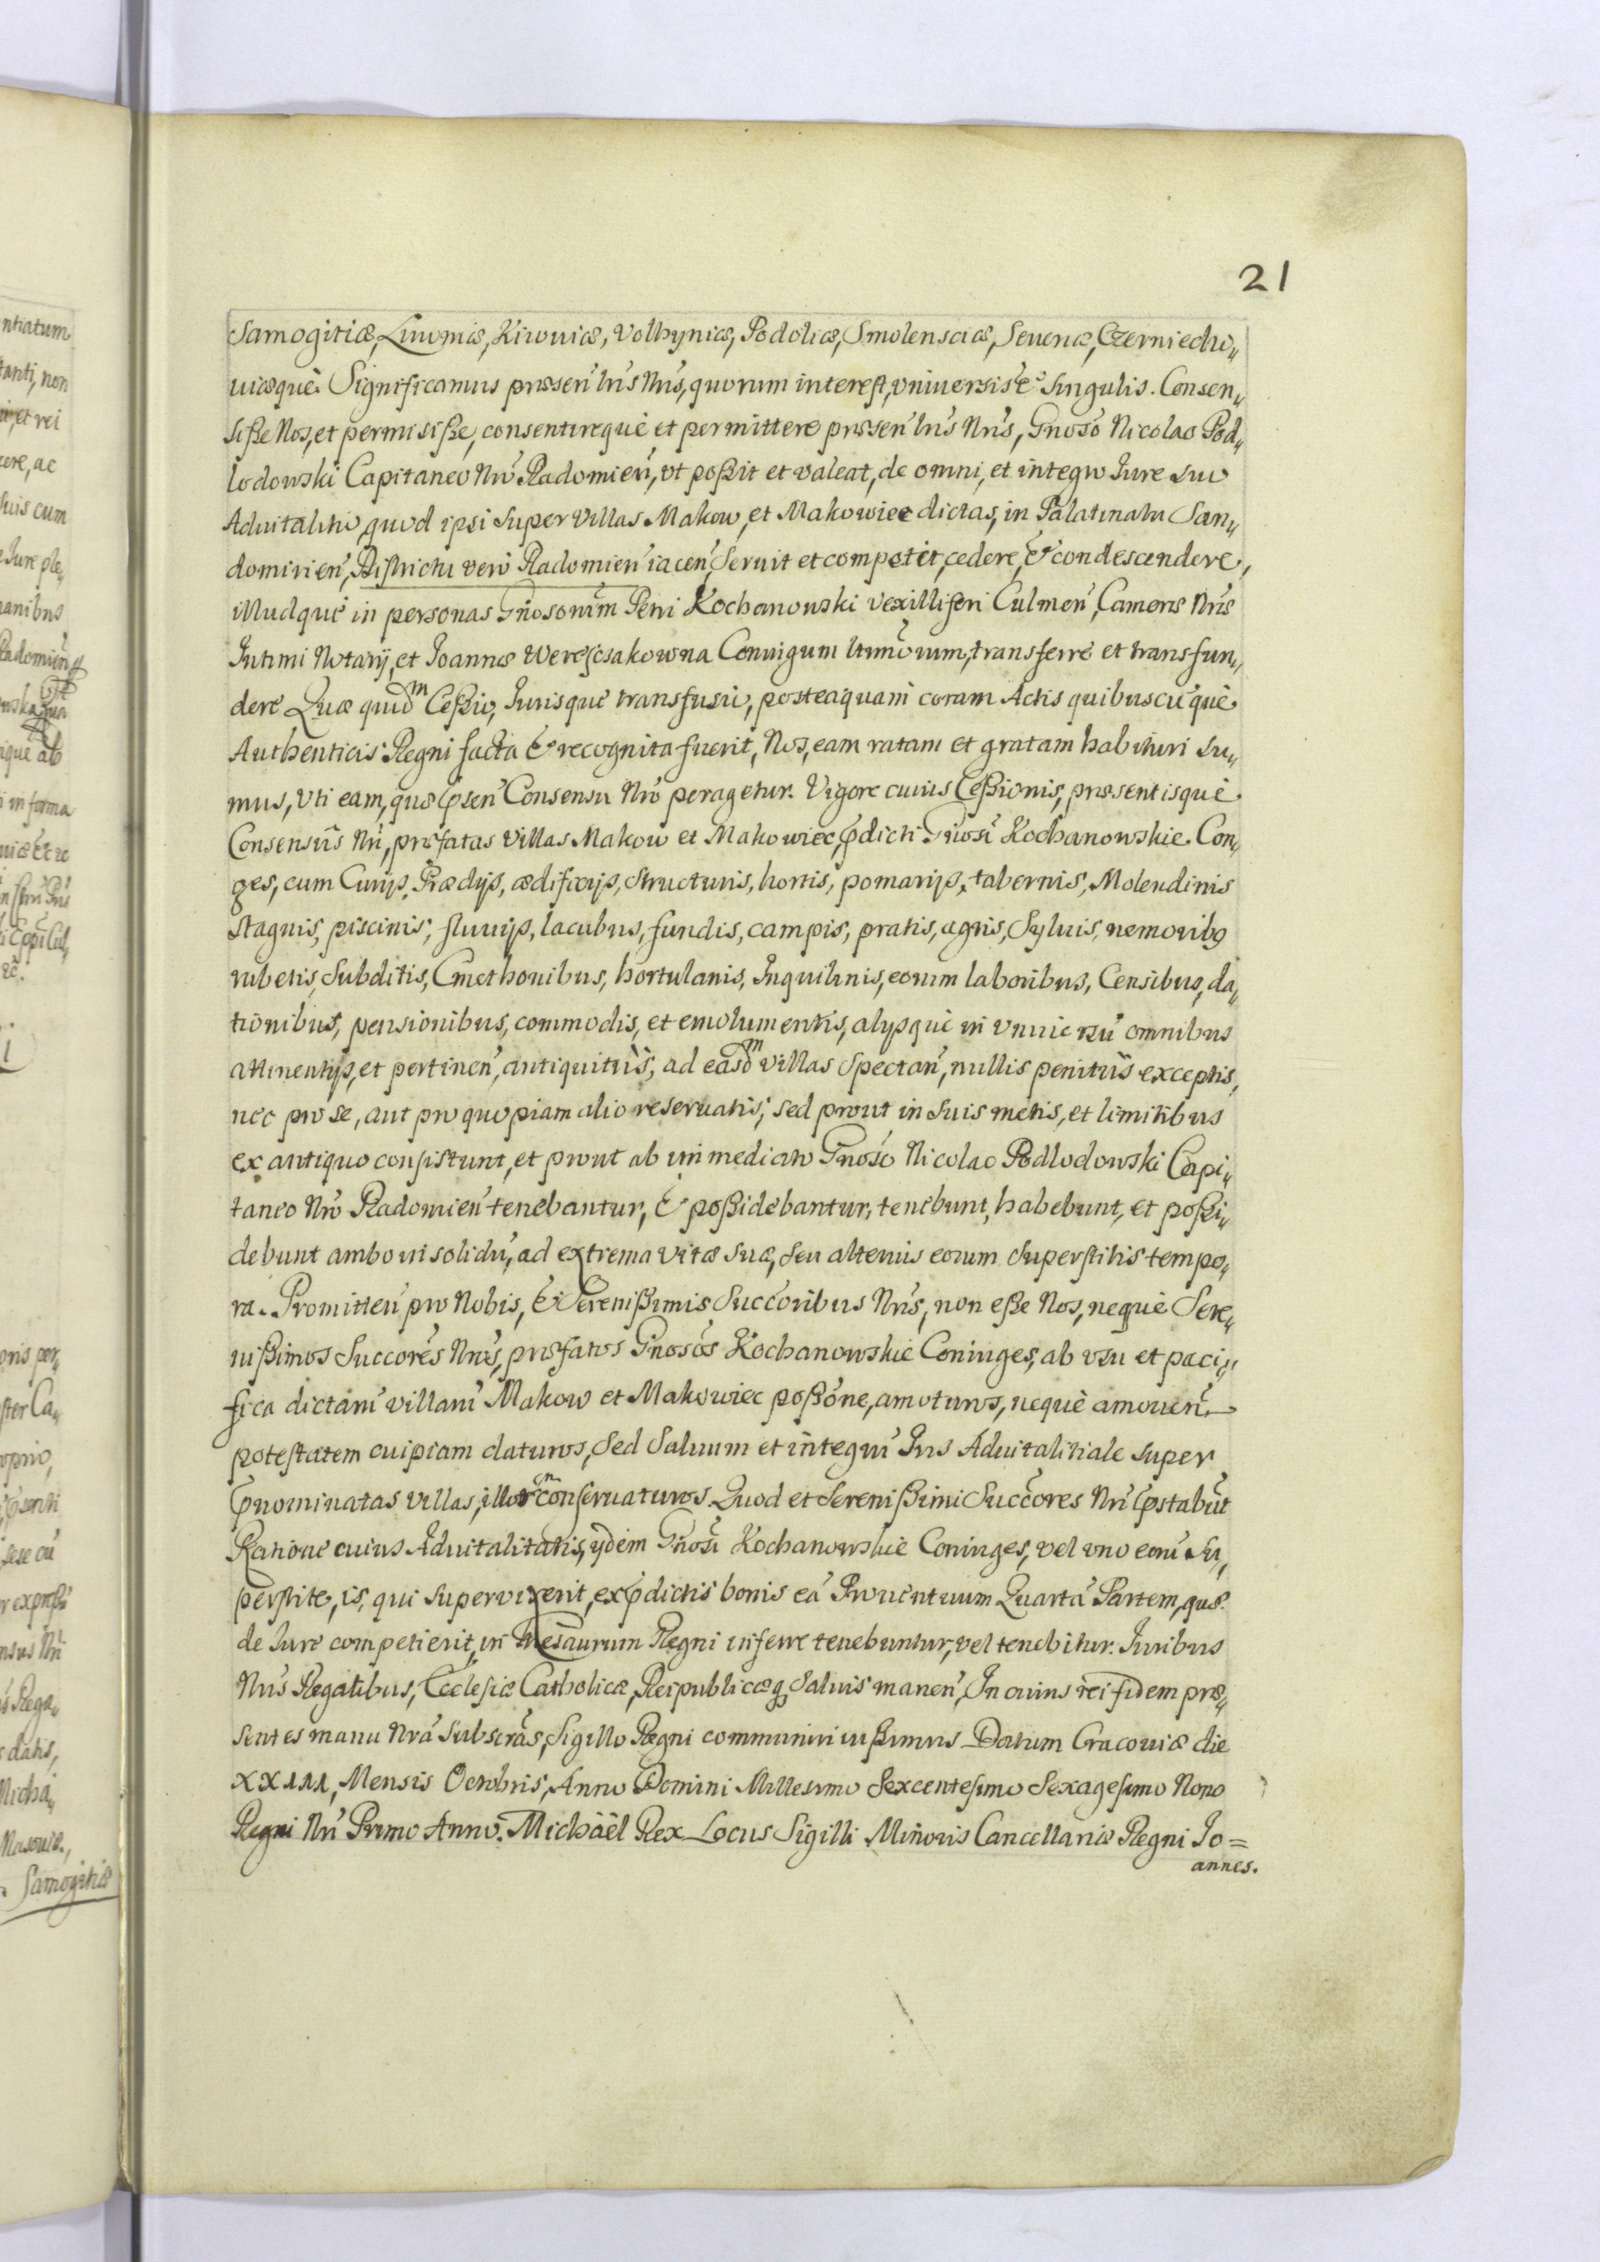 21
Samogitiæ, Liuoniæ, Kiiouiæ, Volhyniæ, Podoliæ, Smolensciæ, Seueriæ, Czerniechi„
uiæque. Significamus præsen͂ l͞ris N͞ris, quorum interest, vniuersis et singulis. Consen„
sisße Nos, et permisisße, consentireque et permittere præsen͂ l͞ris N͞ris, Gnoso Nicolao Pod„
lodowski Capitaneo N͞ro Radomien͂, vt posßit et valeat, de omni, et integro Iure suo
Aduitalitio, quod ipsi super Villas Makow, et Makowiec dictas, in Palatinatu San„
domirien͂, Districtu vero Radomien͂ iacen͂, seruit et competit, cedere, & condescendere,
illudque in personas Gnosorum Petri Kochanowski Vexilliferi Culmen͂, Cameræ N͞ræ
Intimi Notarij, et Joannæ Weresczakowna Coniugum l͞timorum, transferre et transfun„
dere Quæ quidm Cesßio, Iurisque transfusio, posteaquam coram Actis quibuscu͂que
Authenticis Regni facta & recognita fuerit, Nos, eam ratam et gratam habituri su„
mus, Vti eam, quæ p͞sen͂ Consensu N͞ro peragetur. Vigore cuius Cesßionis, præsentisque
Consensus N͞ri, præfatas Villas Makow et Makowiec, p͞dicti Gnosi Kochanowskie Con„
ges, cum Curijs, Prædijs, ædificijs, structuris, hortis, pomarijs, tabernis, Molendinis
stagnis, piscinis, fluuijs, lacubus, fundis, campis, pratis, agris, syluis, nemoribꝯ
rubetis, subditis, Cmethonibus, hortulanis, Inquilinis, eorum laboribus, Censibus, da„
tionibus, pensionibus, commodis, et emolumentis, alijsque in vniuersu͂ omnibus
attinentijs, et pertinen͂, antiquitus, ad easdm villas spectan͂, nullis penitus exceptis,
nec pro se, aut pro quopiam alio reseruatis; sed prout in suis metis, et limitibus
ex antiquo consistunt, et prout ab immediato Gnoso Nicolao Podlodowski Capi„
taneo N͞ro Radomien͂ tenebantur, & posßidebantur, tenebunt, habebunt, et posßi„
debunt ambo in solidu͂, ad extrema vitæ suæ, seu alterius eorum superstitis tempo„
ra. Promitten͂ pro Nobis, & Serenisßimis Succ͞oribus N͞ris, non esße Nos, neque Sere„
nisßimos Succ͞ores N͞ros, præfatos Gnosos Kochanowskie Coniuges, ab vsu et paci„
fica dictaru͂ villaru͂ Makow et Makowiec posß͞one, amoturos, neque amouen͂
potestatem cuipiam daturos, sed saluum et integru͂ Ius Aduitalitiale super
p͞nominatas villas, illis conseruaturos Quod et Serenisßimi Succ͞ores N͞ri p͞stabu͂t
Ratione cuius Aduitalitatis, ijdem Gnosi Kochanowskie Coniuges, vel vno eoru͂ su„
perstite, is, qui superuixerit, ex p͞dictis bonis ea͂ Prouentuum Quarta͂ Partem, quæ
de Iure competierit, in Thesaurum Regni inferre tenebuntur, vel tenebitur. Iuribus
N͞ris Regalibus, Ecclesiæ Catholicæ, Reipublicæqꝫ saluis manen͂, In cuius rei fidem præ„
sentes manu N͞ra subscr͞as, Sigillo Regni communiri iusßimus Datum Cracouiæ die
XXIII, Mensis Octobris, Anno Domini Millesimo Sexcentesimo Sexagesimo Nono
Regni N͞ri Primo Anno. Michaël Rex Locus Sigilli Minoris Cancellariæ Regni Jo=
annes.